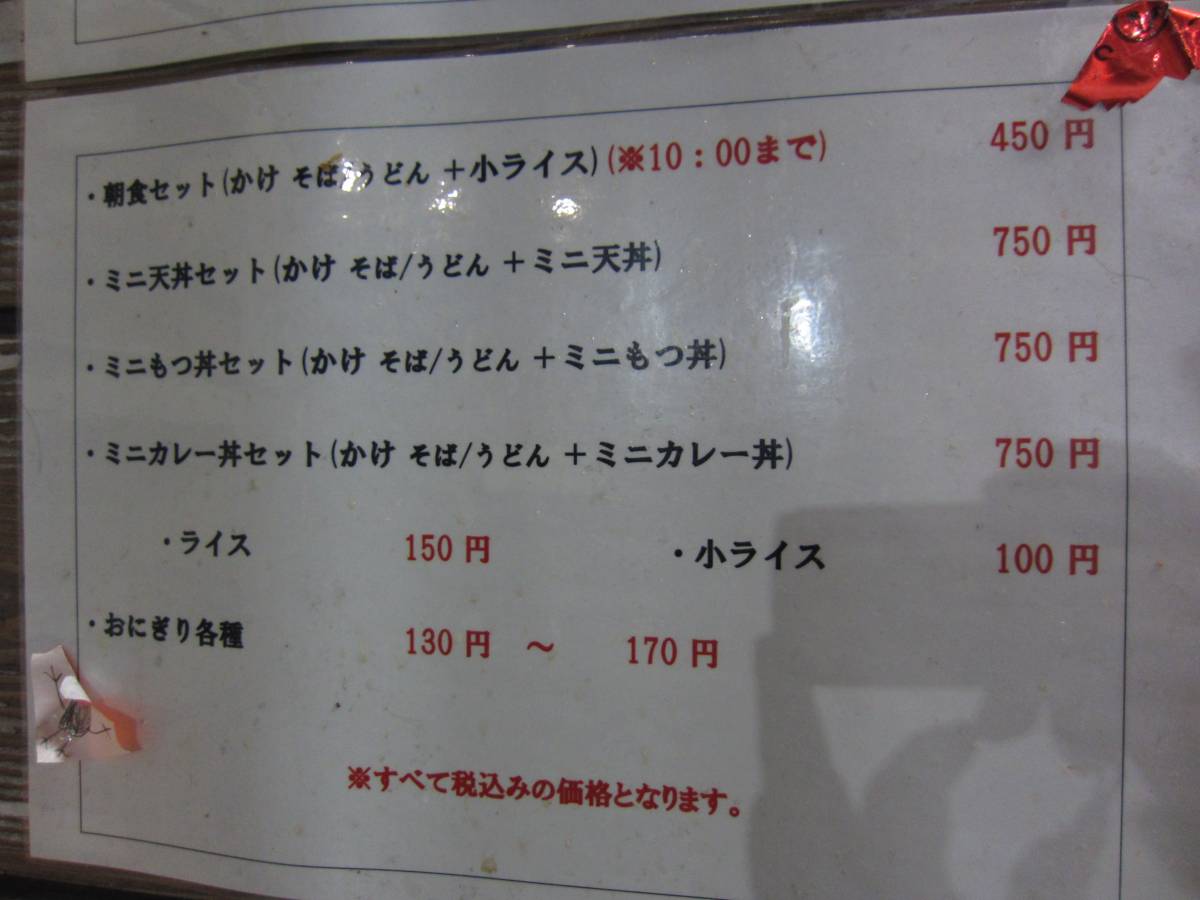 ・朝食セット(かけ そば/うどん +小ライス)(※10:00まで) 450 円
・ミニ天丼セット(かけ そば/うどん +ミニ天丼) 750 円
・ミニもつ丼セット(かけ そば/うどん +ミニもつ丼) 750 円
・ミニカレー丼セット(かけ そば/うどん +ミニカレー丼) 750 円
・ライス 150 円 ・小ライス 100 円
・おにぎり各種 130 円 ～ 170 円
※すべて税込みの価格となります。